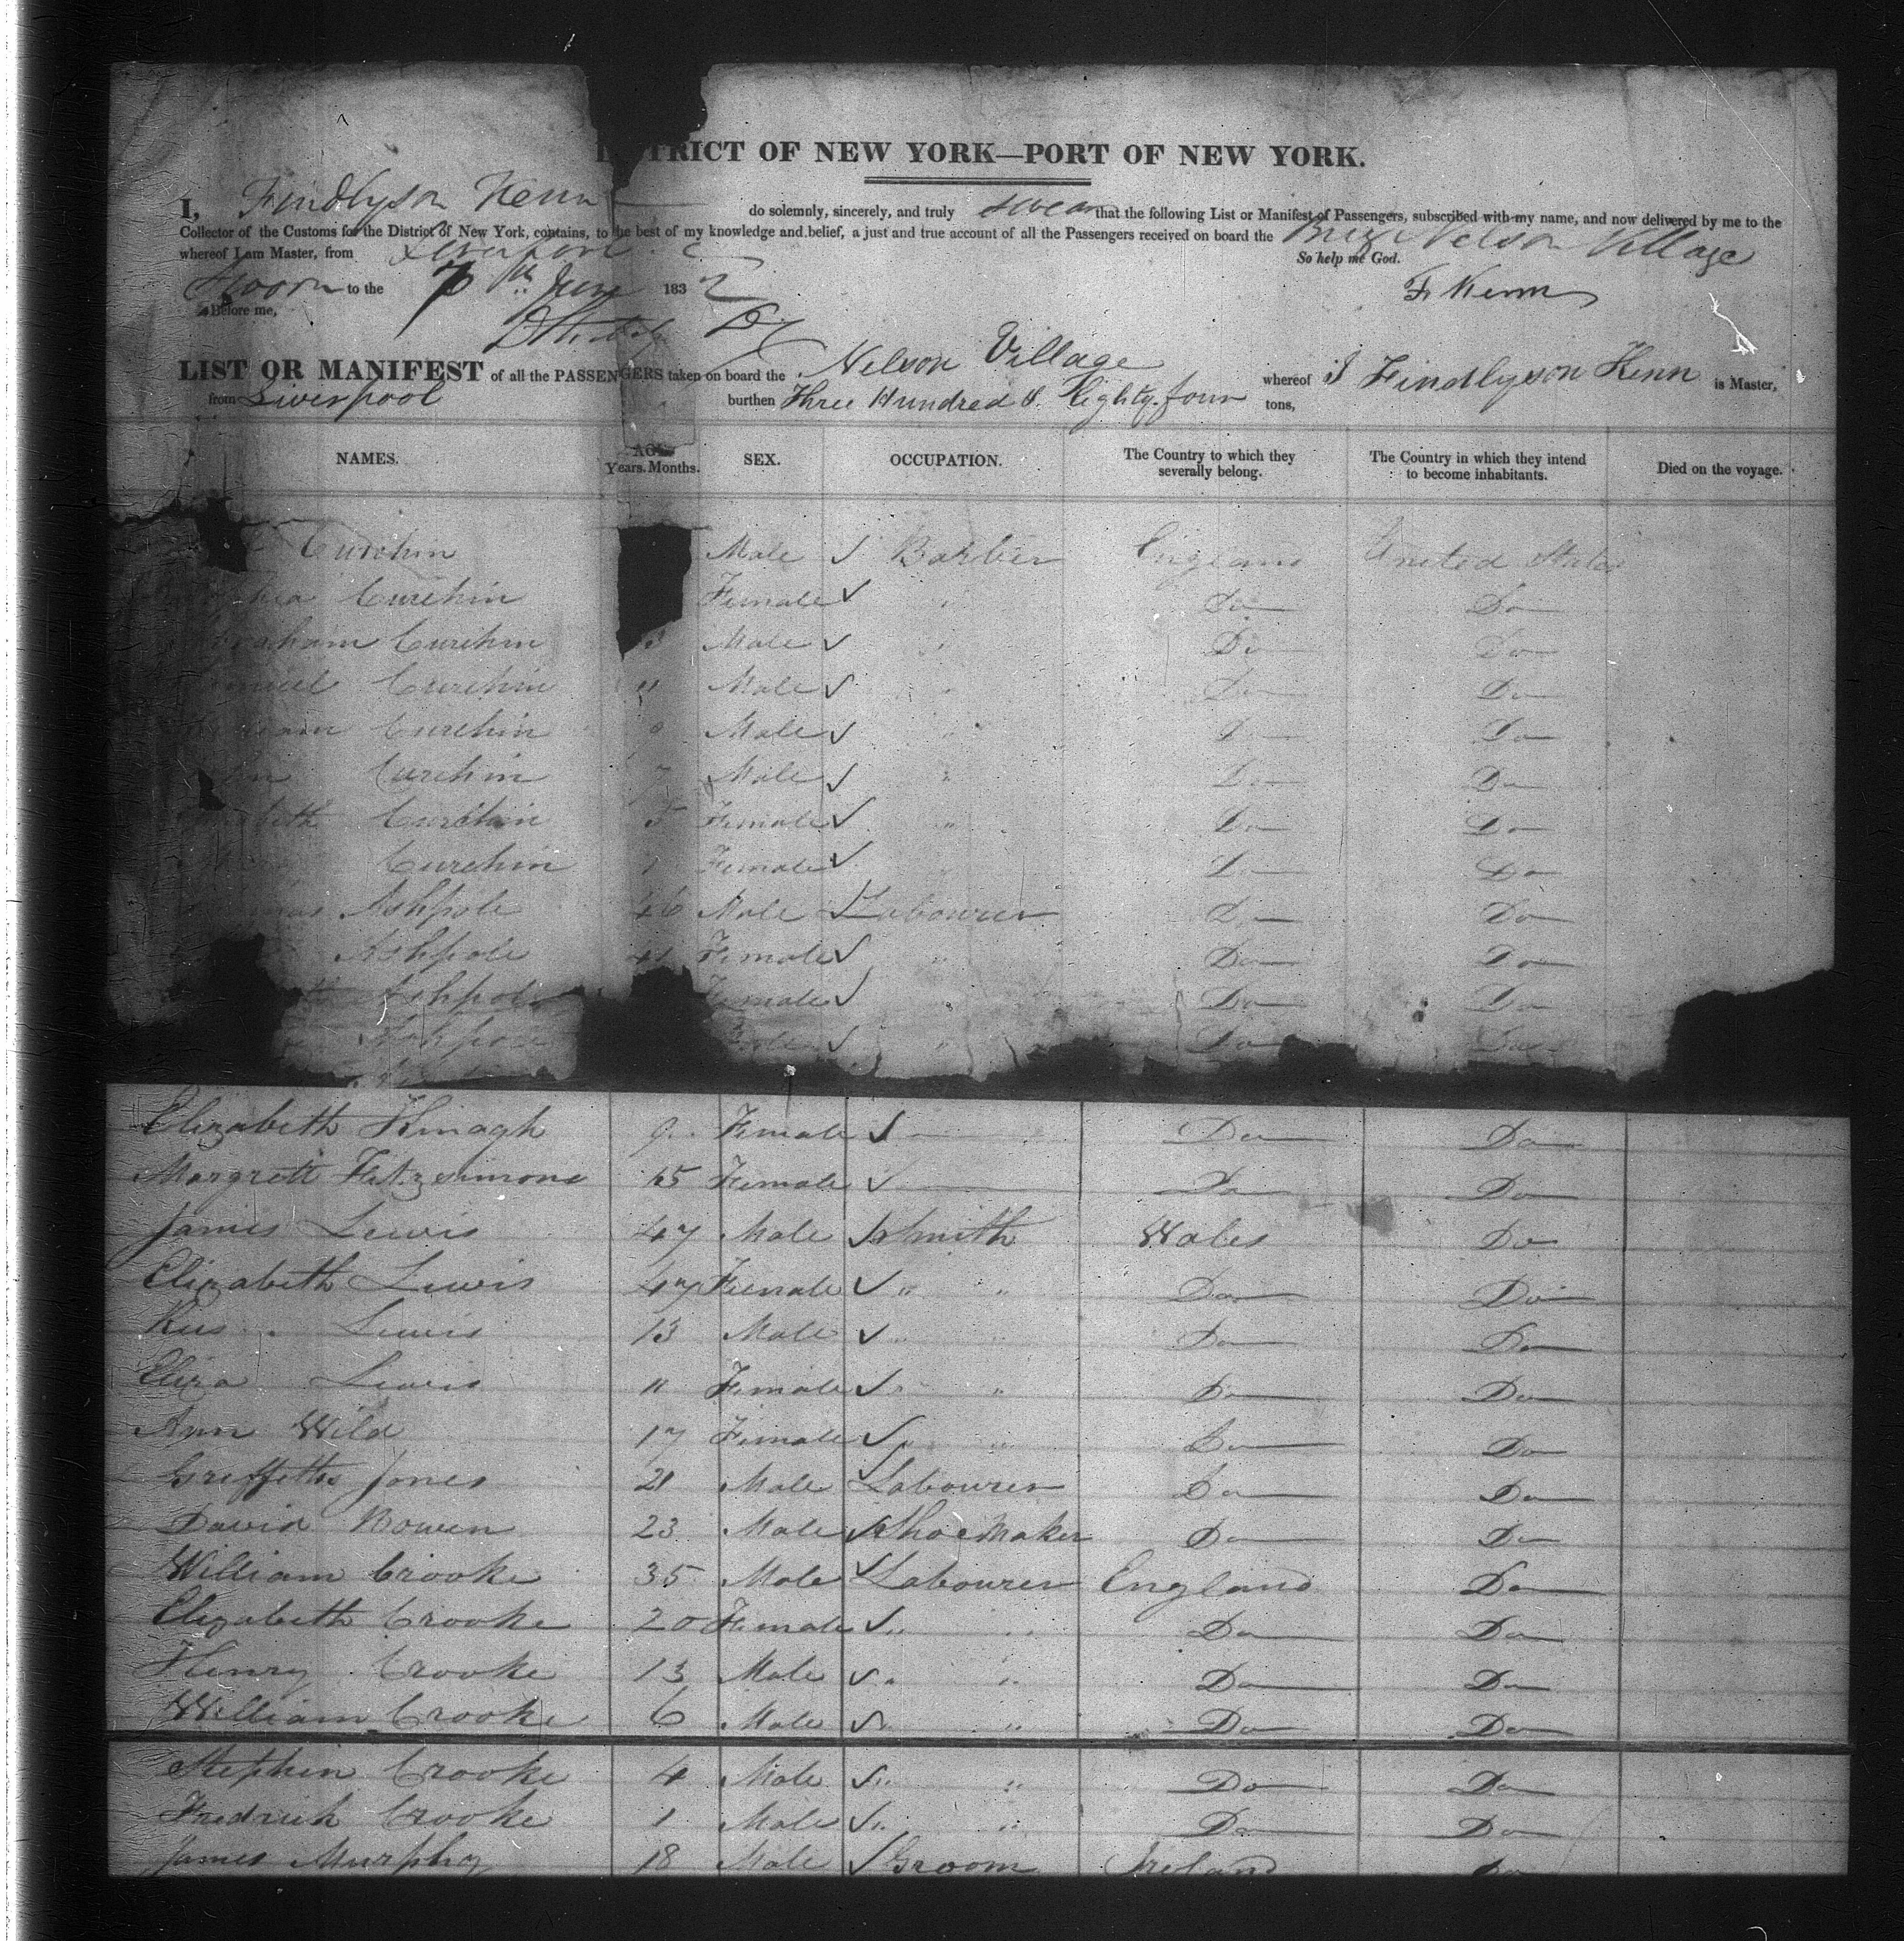 DISTRICT OF NEW YORK—PORT OF NEW YORK.
I, Findlyson Kenn do solemnly, sincerely, and truly swear that the following List or Manifest of Passengers, subscribed with my name, and now delivered by me to the
Collector of the Customs for the District of New York, contains, to the best of my knowledge and belief, a just and true account of all the Passengers received on board the Brig Nelson Village
whereof I am Master, from Liverpool So help me God.
Sworn to the 7th June 1832 F Kenn
Before me,
LIST OR MANIFEST of all the PASSENGERS taken on board the Nelson Village whereof I Findlyson Kenn is Master,
from Liverpool burthen Three Hundred & Eighty-four tons,
NAMES. AGE Years. Months. SEX. OCCUPATION. The Country to which they severally belong. The Country in which they intend to become inhabitants. Died on the voyage.
Curchin Male Barber England United States
Curchin Female " Do Do
Curchin Male " Do Do
Curchin 11 Male " Do Do
Curchin Male " Do Do
Curchin 7 Male " Do Do
Curchin 5 Female " Do Do
Curchin 1 Female " Do Do
Ashpole 46 Male Labourer Do Do
Ashpole Female " Do Do
Ashpole Female " Do Do
Ashpole " Do Do
Elizabeth Kinagh 9 Female Do Do
Margrett Fitzsimons 65 Female Do Do
James Lewis 47 Male Smith Wales Do
Elizabeth Lewis 47 Female " " Do Do
Rees Lewis 13 Male " " Do Do
Eliza Lewis 11 Female " " Do Do
Ann Wild 17 Female " " Do Do
Griffeths Jones 21 Male Labourer Do Do
David Bowen 23 Male Shoe Maker Do Do
William Crooke 35 Male Labourer England Do
Elizabeth Crooke 20 Female " " Do Do
Henry Crooke 13 Male " " Do Do
William Crooke 6 Male " " Do Do
Stephen Crooke 4 Male " " Do Do
Fredrick Crooke 1 Male " " Do Do
James Murphy 18 Male Groom Ireland Do